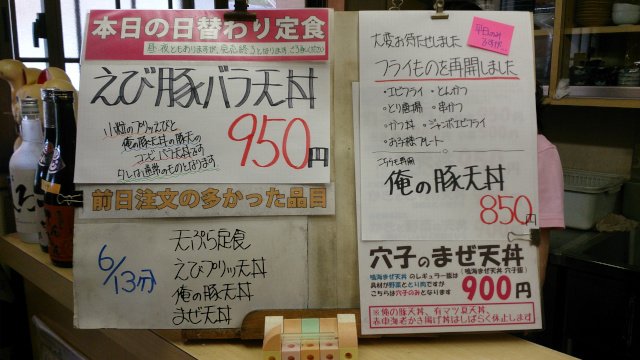 本日の日替わり定食
昼・夜ともありますが、売切終了となります。ご了承ください
えび豚バラ天丼
小数のプリッえびと
俺の豚天丼の豚天の
コンビバラ天丼です
タレは通常のものとなります
950円
前日注文の多かった品目
6/13分
天ぷら定食
えびプリッ天丼
俺の豚天丼
まぜ天丼
平日のみ
ですが
大変お待たせしました
フライものを再開しました
・エビフライ ・とんかつ
・とり唐揚 ・串かつ
・かつ丼 ・ジャンボエビフライ
・お子様プレート
俺の豚天丼
850円
穴子のまぜ天丼
鳴海まぜ天丼 のレギュラー版は
(鳴海まぜ天丼 穴子版)
具材が野菜ととり肉ですが
こちらは穴子のみとなります
900円
※俺の豚天丼、有マツ夏天丼、
赤中海老かき揚げ丼はしばらく休止します